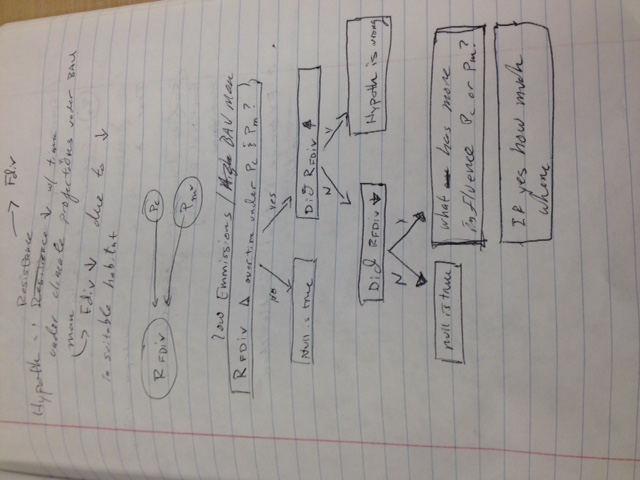 → Fdiv
Resistance
Hypoth : Resilience ↓ w/ time
under climate projections under BAU
man
↳ Fdiv ↓ due to ↓
in suitable habitat
RFDIV ← Pc
Pm
low Emmissions / High BAU man
RFDIV Δ over time under Pc & Pm?
No yes
Null is true Did RFDIV ↑
N Y
Did RFDIV ↓ Hypoth is wrong
N Y
null is true what has more
influence Pc or Pm?
If yes how much
where